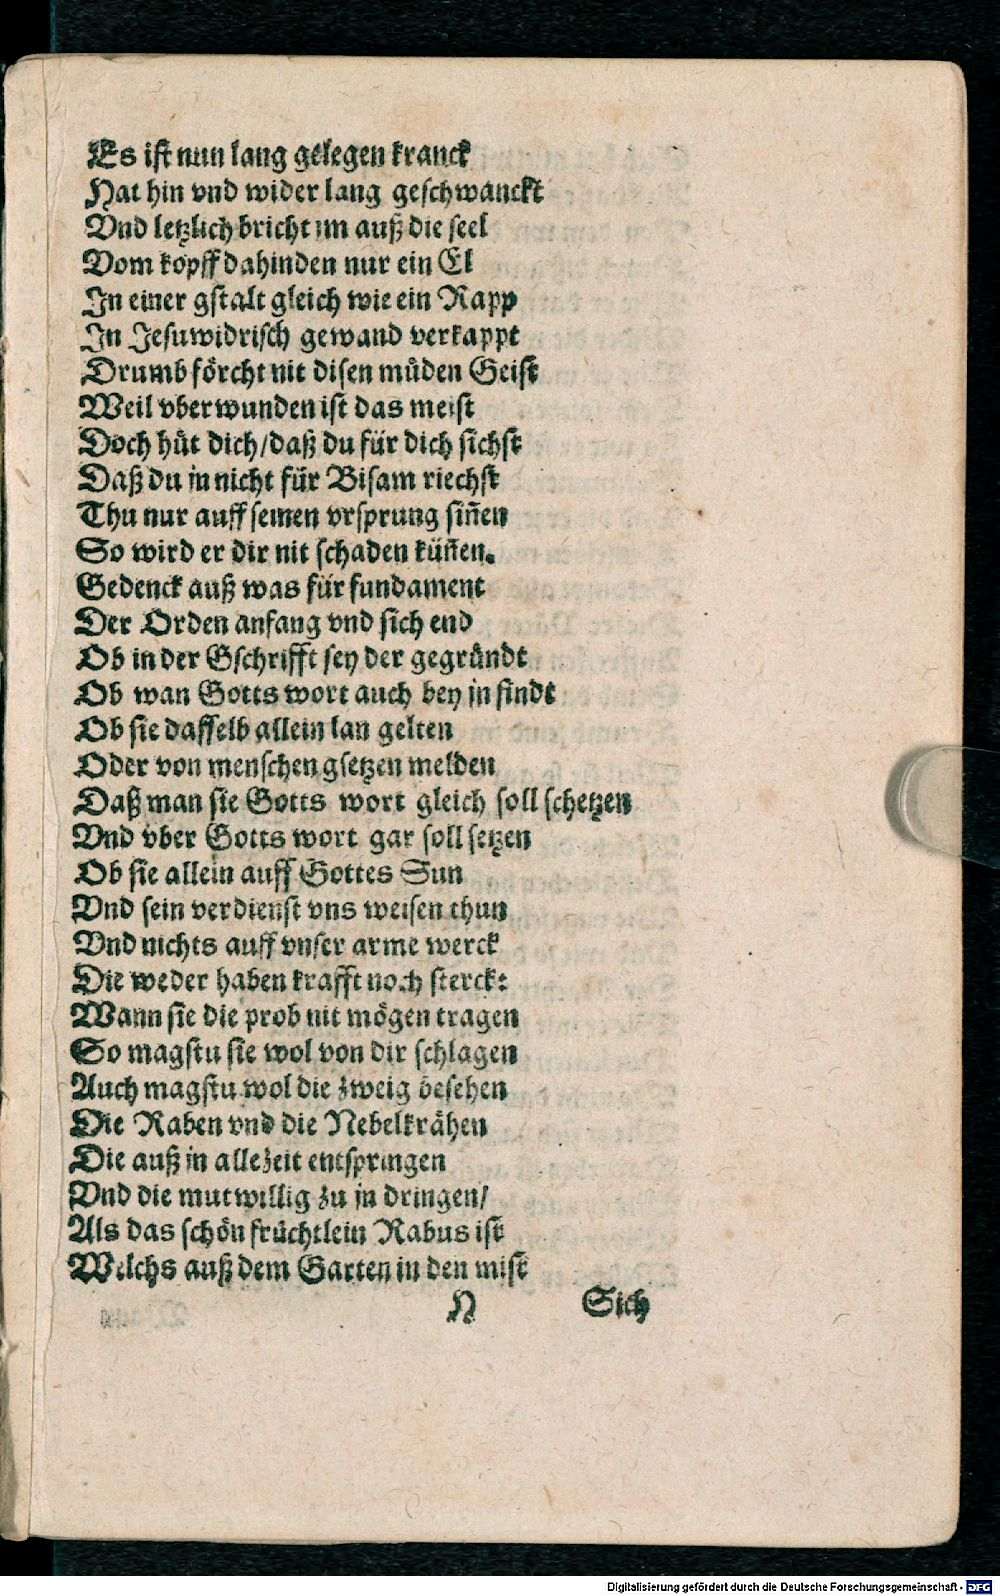 Es ist nun lang gelegen kranck
Hat hin vnd wider lang geschwanckt
Vnd letzlich bricht im auß die seel
Vom kopff dahinden nur ein El
In einer gstalt gleich wie ein Rapp
In Jesuwidrisch gewand verkappt
Drumb förcht nit disen müden Geist
Weil vberwunden ist das meist
Doch hüt dich/daß du für dich sichst
Daß du in nicht für Bisam riechst
Thu nur auff seinen vrsprung siñen
So wird er dir nit schaden küñen.
Gedenck auß was für fundament
Der Orden anfang vnd sich end
Ob in der Gschrifft sey der gegründt
Ob wan Gotts wort auch bey jn findt
Ob sie dasselb allein lan gelten
Oder von menschen gsetzen melden
Daß man sie Gotts wort gleich soll schetzen
Vnd vber Gotts wort gar soll setzen
Ob sie allein auff Gottes Sun
Vnd sein verdienst vns weisen thun
Vnd nichts auff vnser arme werck
Die weder haben krafft noch sterck:
Wann sie die prob nit mögen tragen
So magstu sie wol von dir schlagen
Auch magstu wol die zweig besehen
Die Raben vnd die Nebelkrähen
Die auß jn allezeit entspringen
Vnd die mutwillig zu jn dringen/
Als das schön früchtlein Rabus ist
Welchs auß dem Garten in den mist
N Sich
Digitalisierung gefördert durch die Deutsche Forschungsgemeinschaft - DFG